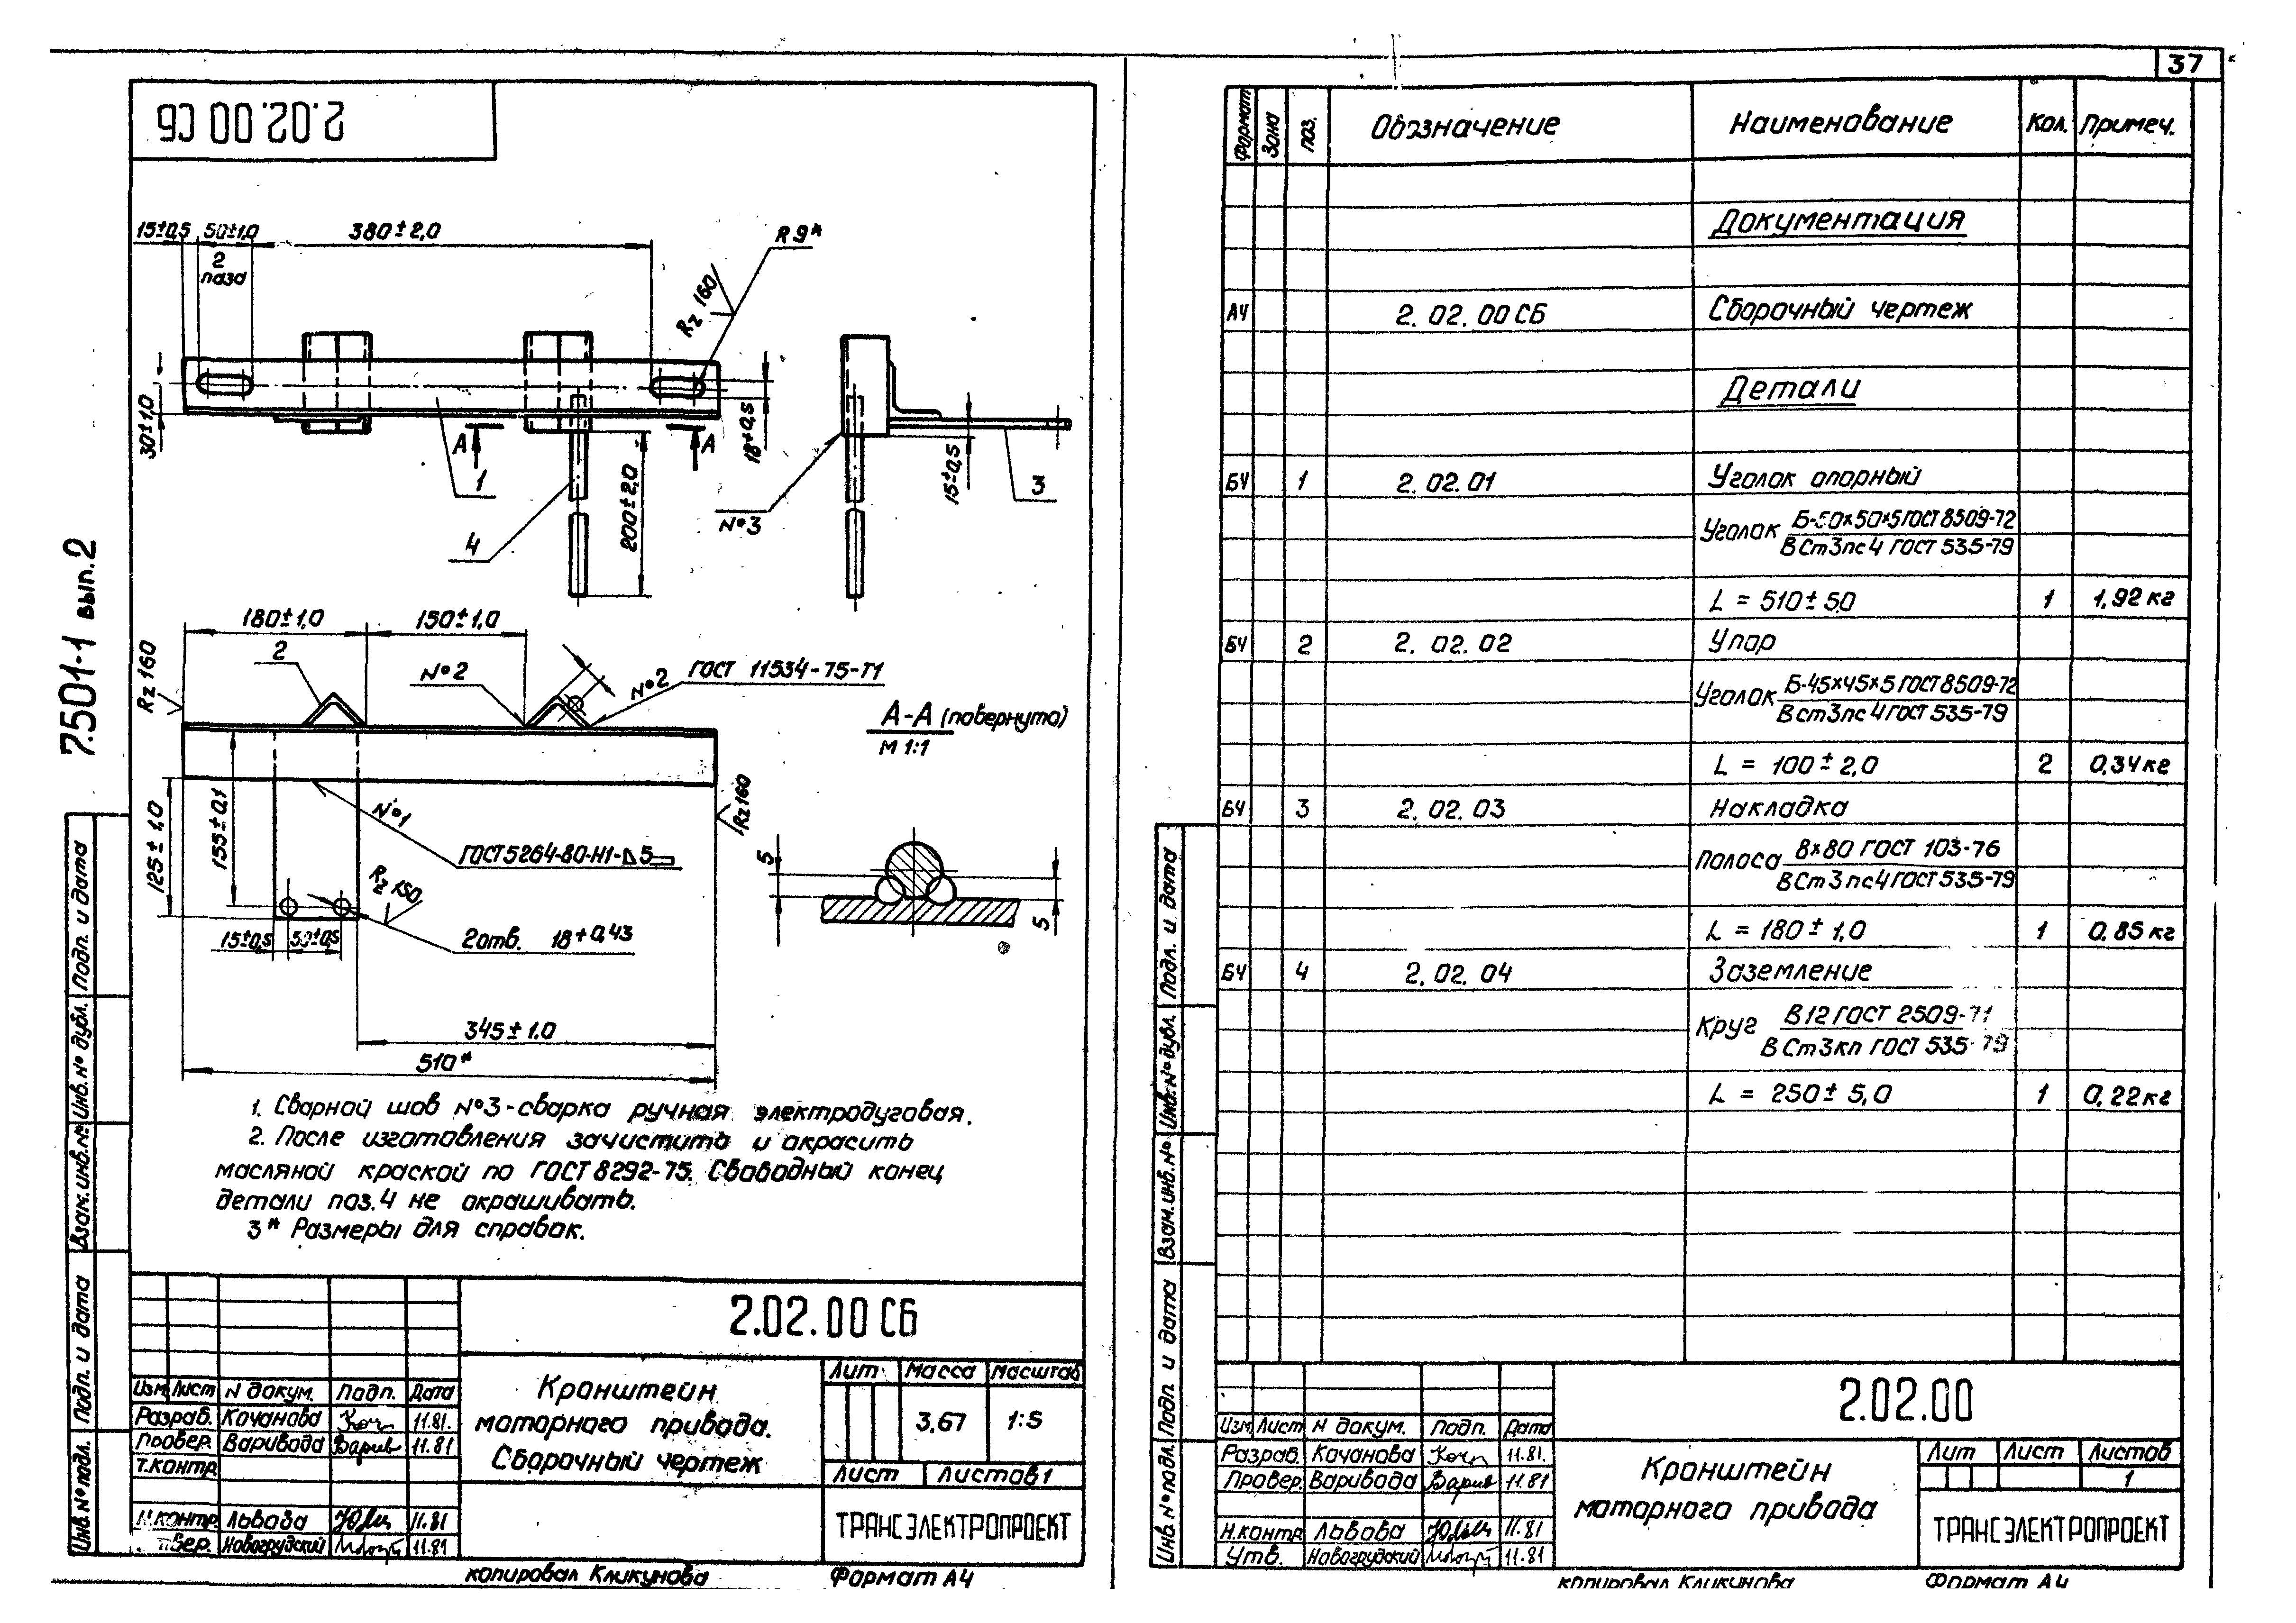 37
2.02.00 СБ
7.501-1 вып.2
15±0,5
50±1,0
2
паза
380±2,0
R 9*
Rz 160
30±1,0
А
А
18±0,5
1
4
200±2,0
№3
15±0,5
3
180±1,0
150±1,0
2
№2
№2
ГОСТ 11534-75-Т1
Rz 160
А-А (повернуто)
М 1:1
125±1,0
155±0,1
№1
ГОСТ 5264-80-Н1-⊿5
Rz 150
Rz 160
15±0,5
50±0,5
2 отв. 18+0,43
5
5
345±1,0
510*
1. Сварной шов №3-сварка ручная электродуговая.
2. После изготовления зачистить и окрасить
масляной краской по ГОСТ 8292-75. Свободный конец
детали поз.4 не окрашивать.
3* Размеры для справок.
2.02.00 СБ
Кранштейн
моторного привода.
Сборочный чертеж
Лит. Масса Масштаб
3,67 1:5
Лист Листов 1
ТРАНСЭЛЕКТРОПРОЕКТ
Изм Лист N докум. Подп. Дата
Разраб. Кочанова 11.81.
Провер. Варивода 11.81
Т.контр
Н.контр. Львова 11.81
Новогрудский 11.81
копировал Кликунова Формат А4
Подп. и дата
Инв.№ дубл.
Взам.инв.№
Подп. и дата
Инв.№ подл.
Формат Зона Поз. Обозначение Наименование Кол. Примеч.
Документация
А4 2.02.00 СБ Сборочный чертеж
Детали
БЧ 1 2.02.01 Уголок опорный
Уголок Б-50×50×5 ГОСТ 8509-72
В Ст3пс4 ГОСТ 535-79
L = 510±5,0 1 1,92 кг
БЧ 2 2.02.02 Упор
Уголок Б-45×45×5 ГОСТ 8509-72
В Ст3пс4 ГОСТ 535-79
L = 100±2,0 2 0,34 кг
БЧ 3 2.02.03 Накладка
Полоса 8×80 ГОСТ 103-76
В Ст3пс4 ГОСТ 535-79
L = 180±1,0 1 0,85 кг
БЧ 4 2.02.04 Заземление
Круг В12 ГОСТ 2509-71
В Ст3кп ГОСТ 535-79
L = 250±5,0 1 0,22 кг
2.02.00
Кранштейн
моторного привода
Лит Лист Листов
1
ТРАНСЭЛЕКТРОПРОЕКТ
Изм Лист N докум. Подп. Дата
Разраб. Кочанова 11.81.
Провер. Варивода 11.81
Н.контр Львова 11.81
Утв. Новогрудский 11.81
копировал Кликунова Формат А4
Подп. и дата
Инв.№ дубл.
Взам.инв.№
Подп. и дата
Инв.№ подл.